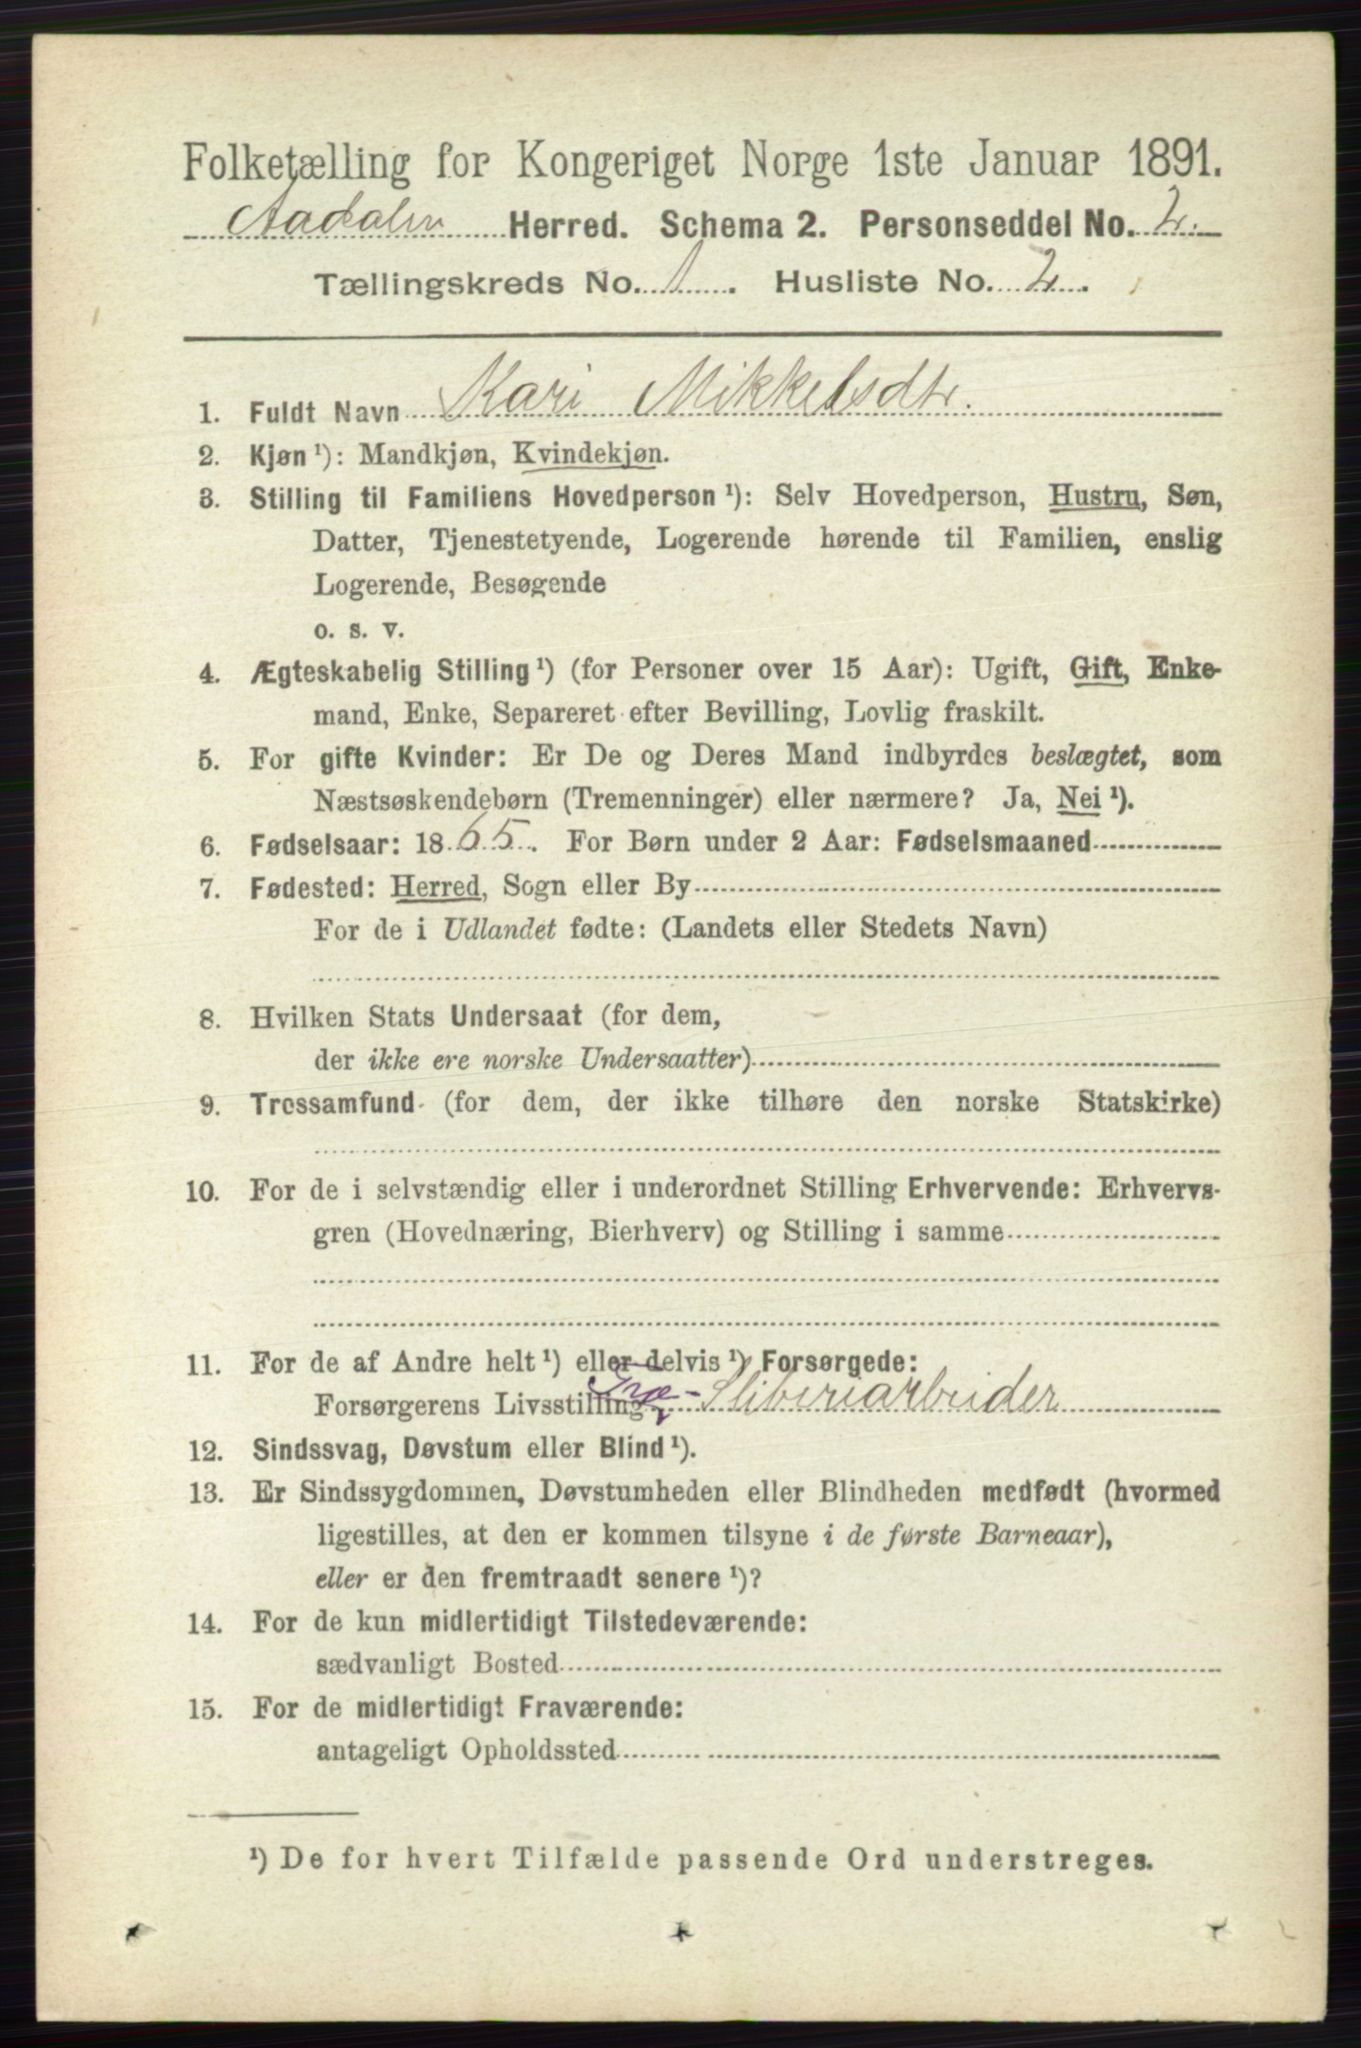 Folketælling for Kongeriget Norge 1ste Januar 1891.
Aadalen Herred. Schema 2. Personseddel No. 2.
Tællingskreds No. 1. Husliste No. 2.
1. Fuldt Navn Kari Mikkelsdtr.
2. Kjøn ¹): Mandkjøn, Kvindekjøn.
3. Stilling til Familiens Hovedperson ¹): Selv Hovedperson, Hustru, Søn,
Datter, Tjenestetyende, Logerende hørende til Familien, enslig
Logerende, Besøgende
o. s. v.
4. Ægteskabelig Stilling ¹) (for Personer over 15 Aar): Ugift, Gift, Enke-
mand, Enke, Separeret efter Bevilling, Lovlig fraskilt.
5. For gifte Kvinder: Er De og Deres Mand indbyrdes beslægtet, som
Næstsøskendebørn (Tremenninger) eller nærmere? Ja, Nei ¹).
6. Fødselsaar: 1865. For Børn under 2 Aar: Fødselsmaaned
7. Fødested: Herred, Sogn eller By
For de i Udlandet fødte: (Landets eller Stedets Navn)
8. Hvilken Stats Undersaat (for dem,
der ikke ere norske Undersaatter)
9. Trossamfund (for dem, der ikke tilhøre den norske Statskirke)
10. For de i selvstændig eller i underordnet Stilling Erhvervende: Erhvervs-
gren (Hovednæring, Bierhverv) og Stilling i samme
11. For de af Andre helt ¹) eller delvis ¹) Forsørgede:
Forsørgerens Livsstilling Træ-Sliberiarbeider
12. Sindssvag, Døvstum eller Blind ¹).
13. Er Sindssygdommen, Døvstumheden eller Blindheden medfødt (hvormed
ligestilles, at den er kommen tilsyne i de første Barneaar),
eller er den fremtraadt senere ¹)?
14. For de kun midlertidigt Tilstedeværende:
sædvanligt Bosted
15. For de midlertidigt Fraværende:
antageligt Opholdssted
¹) De for hvert Tilfælde passende Ord understreges.